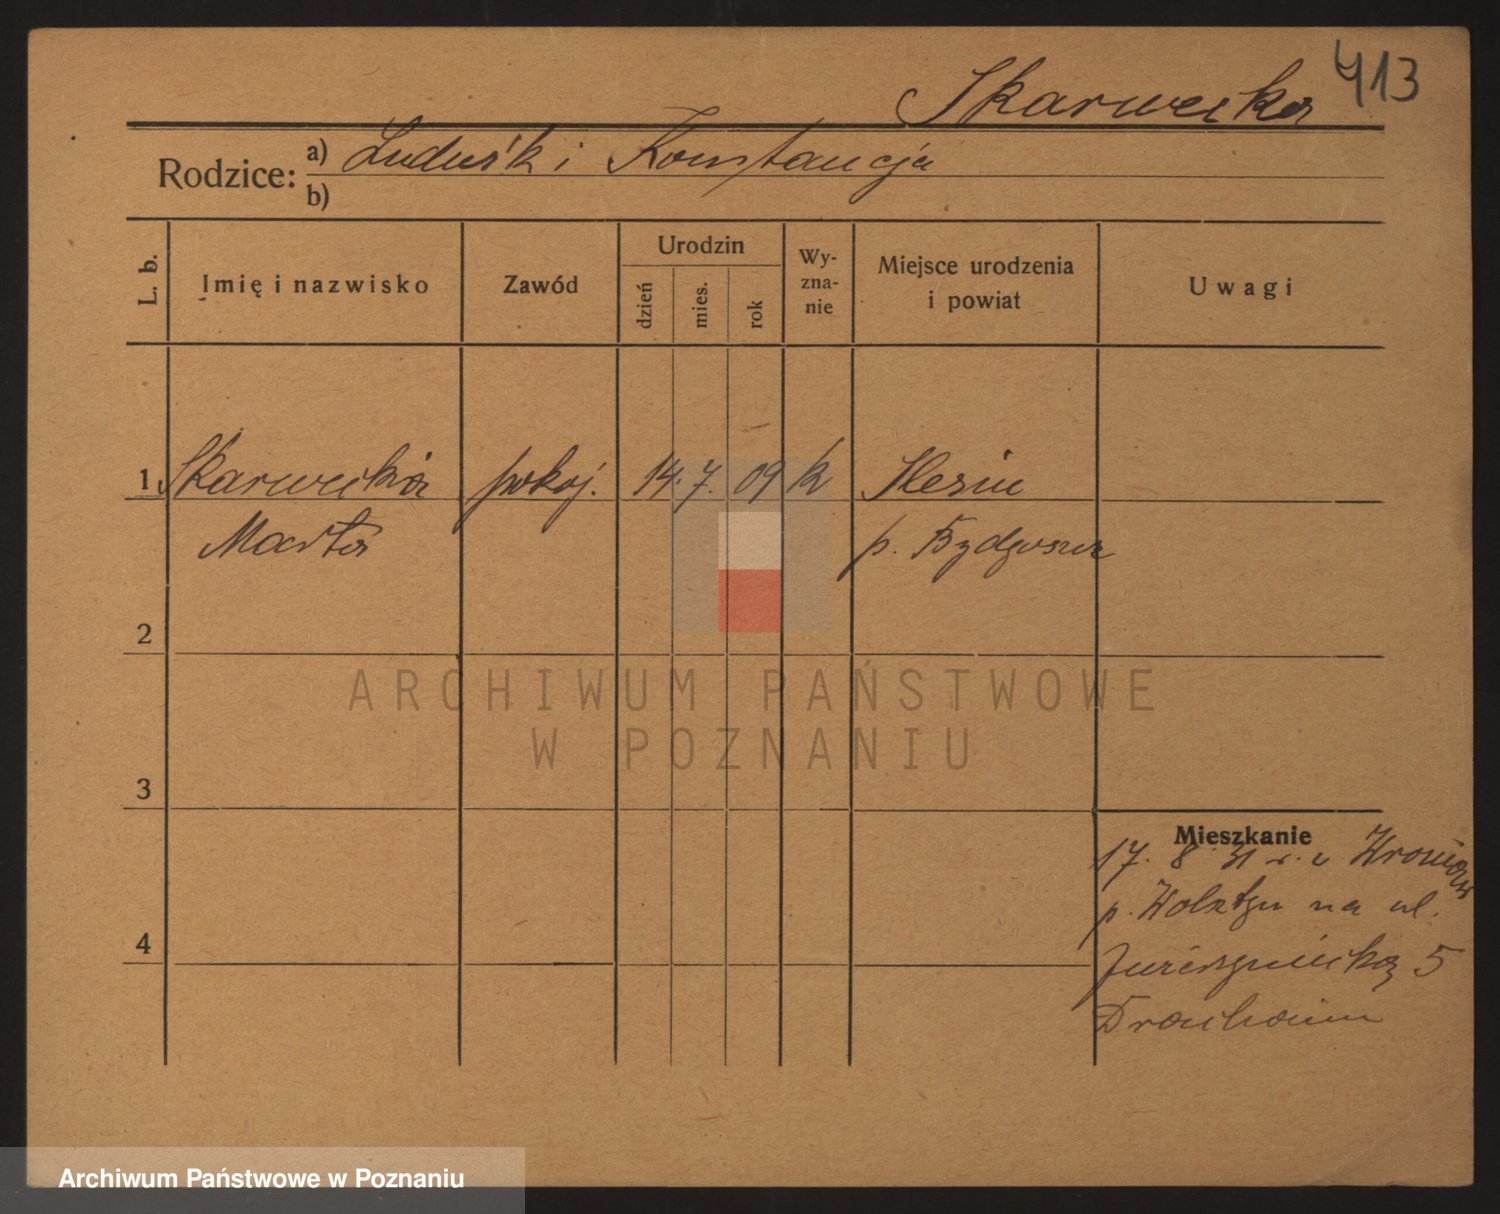 413
Skarwecka
Rodzice: a) Luduik i Konstancja
b)
L. b.
Imię i nazwisko
Zawód
Urodzin
dzień
mies.
rok
Wy-
zna-
nie
Miejsce urodzenia
i powiat
Uwagi
1 Skarwecka pokoj. 14. 7. 09 k Slesin
Marta p. Bydgoszcz
2
3
4
Mieszkanie
17. 8. 31 r. z
p. Wolsztyn na ul.
5
ARCHIWUM PAŃSTWOWE
W POZNANIU
Archiwum Państwowe w Poznaniu